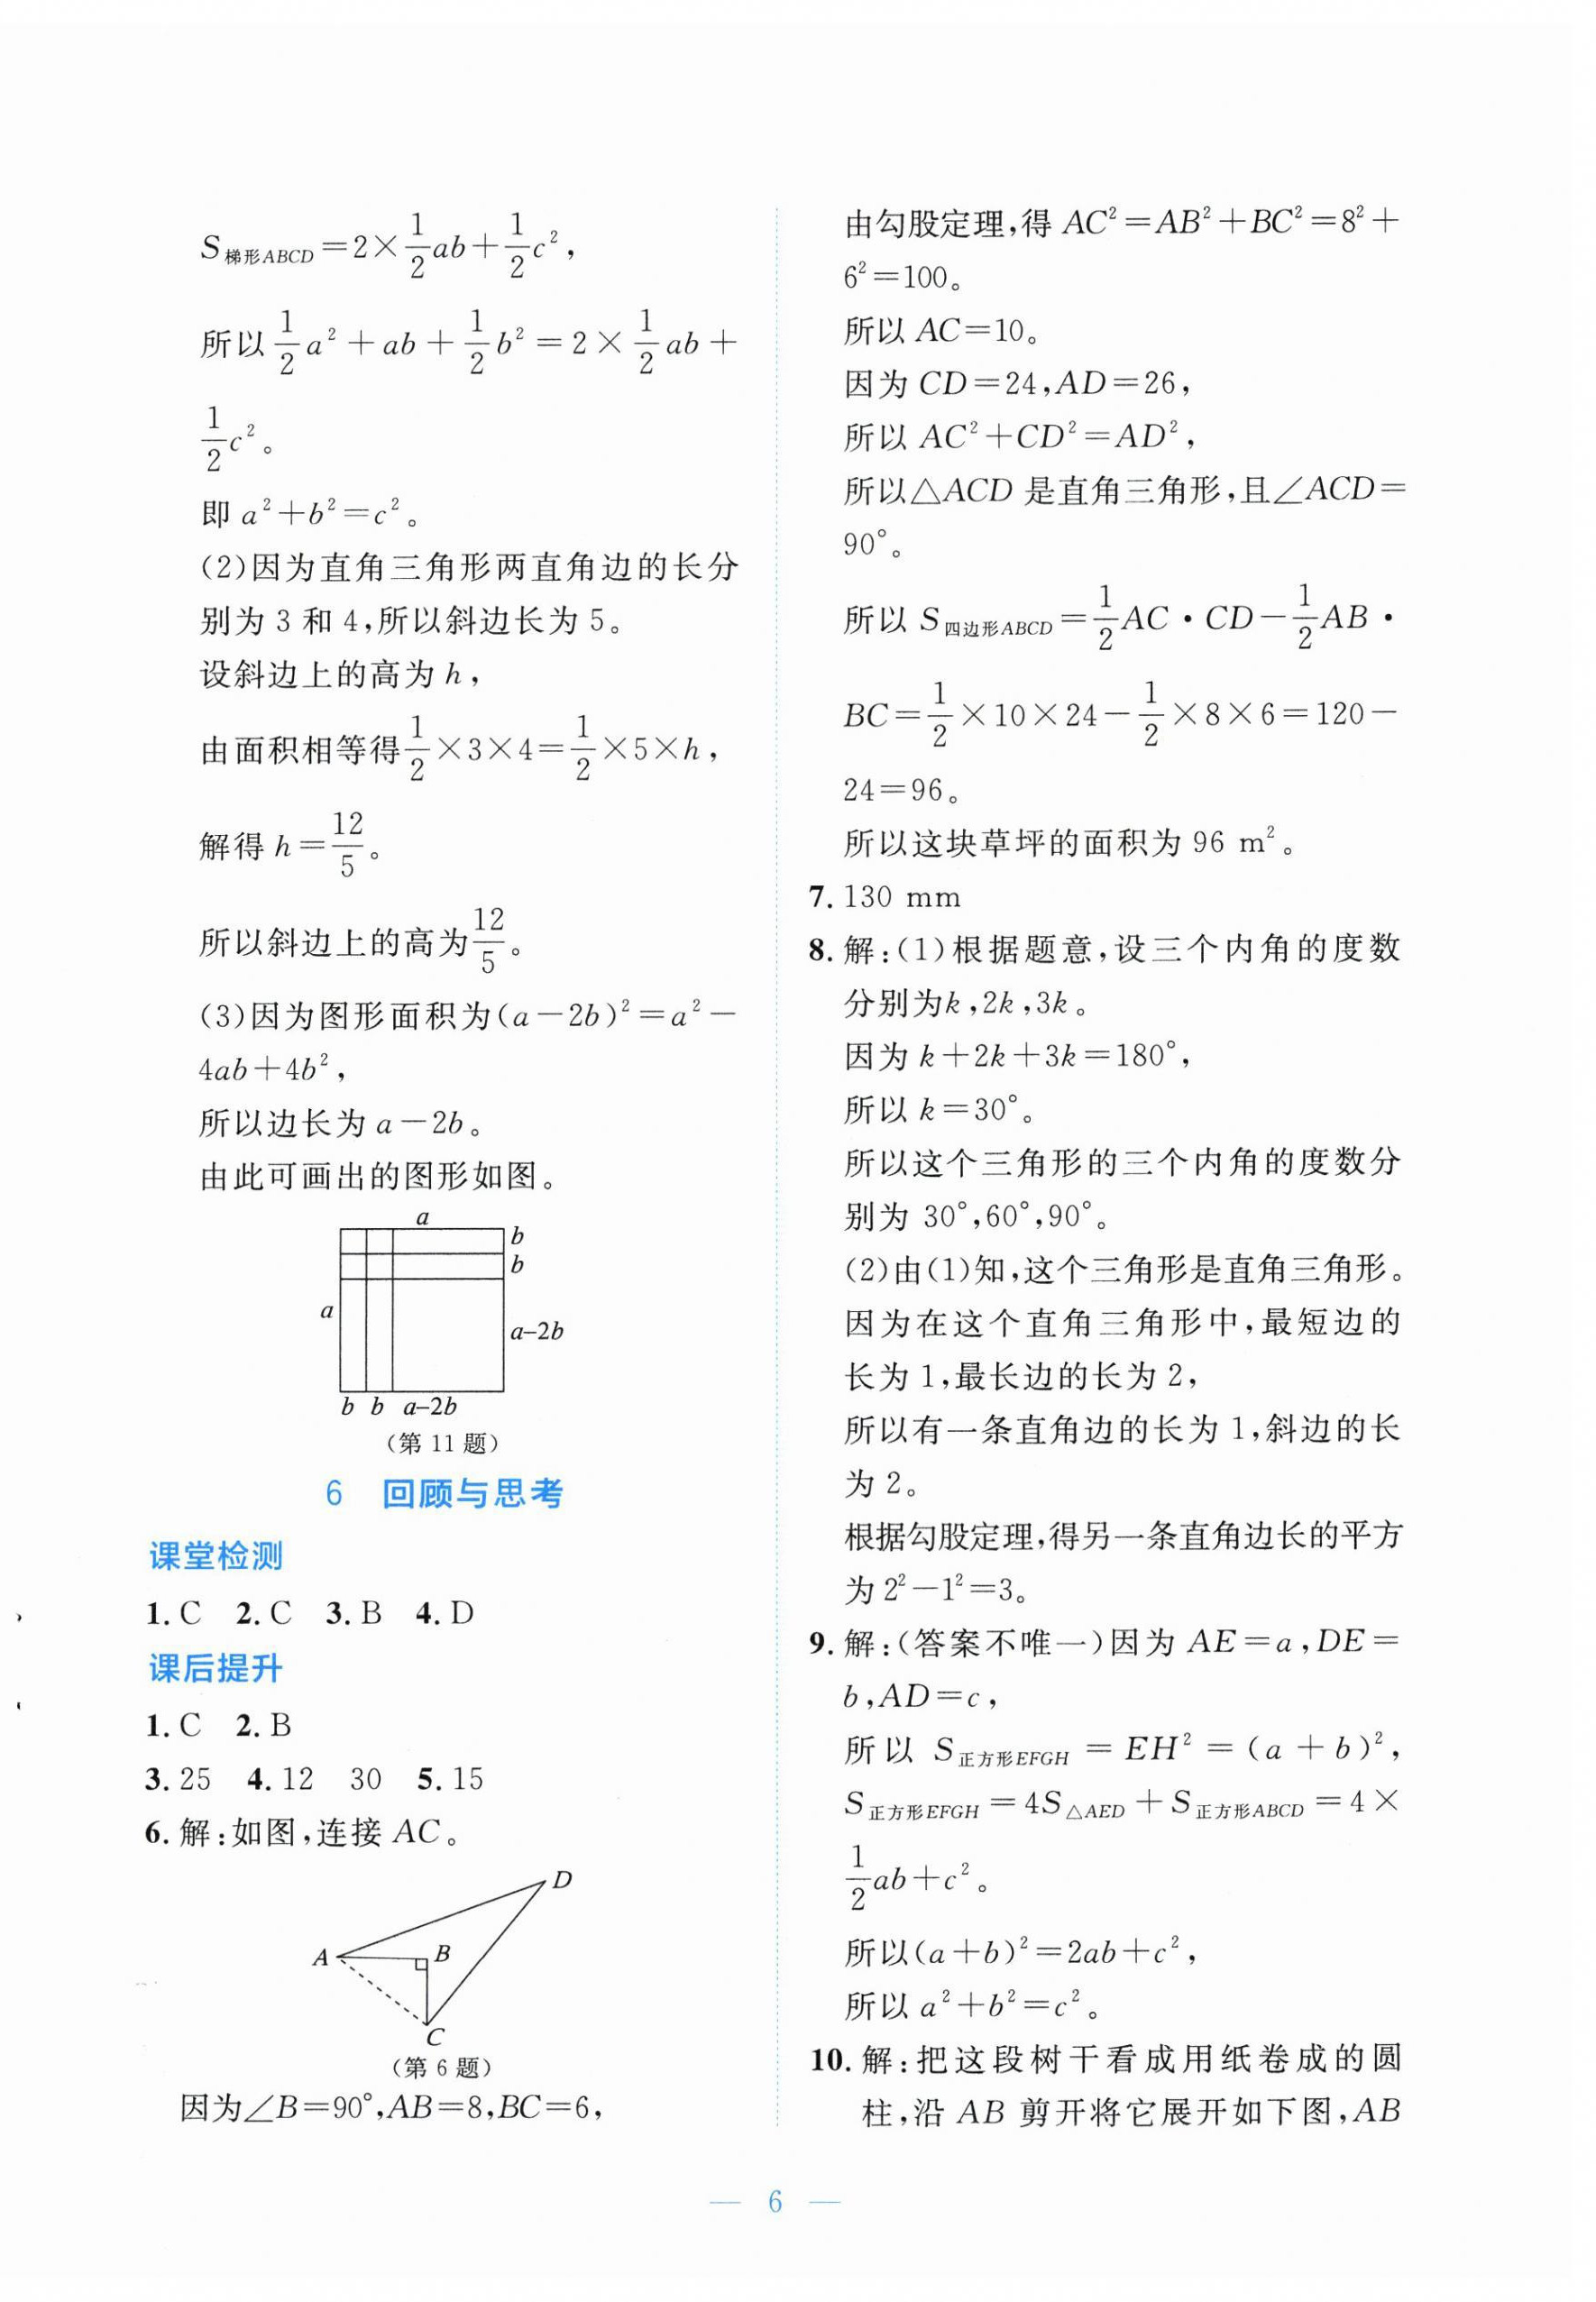 S梯形ABCD=2×\frac{1}{2}ab+\frac{1}{2}c²,
所以\frac{1}{2}a²+ab+\frac{1}{2}b²=2×\frac{1}{2}ab+
\frac{1}{2}c²。
即 a²+b²=c²。
(2)因为直角三角形两直角边的长分
别为 3 和 4,所以斜边长为 5。
设斜边上的高为 h,
由面积相等得\frac{1}{2}×3×4=\frac{1}{2}×5×h,
解得 h=\frac{12}{5}。
所以斜边上的高为\frac{12}{5}。
(3)因为图形面积为(a-2b)²=a²-
4ab+4b²,
所以边长为 a-2b。
由此可画出的图形如图。
a
b
b
a
a-2b
b b a-2b
(第 11 题)
6 回顾与思考
课堂检测
1. C 2. C 3. B 4. D
课后提升
1. C 2. B
3. 25 4. 12 30 5. 15
6. 解:如图,连接 AC。
D
A B
C
(第 6 题)
因为∠B=90°,AB=8,BC=6,
由勾股定理,得 AC²=AB²+BC²=8²+
6²=100。
所以 AC=10。
因为 CD=24,AD=26,
所以 AC²+CD²=AD²,
所以△ACD 是直角三角形,且∠ACD=
90°。
所以 S四边形ABCD=\frac{1}{2}AC·CD-\frac{1}{2}AB·
BC=\frac{1}{2}×10×24-\frac{1}{2}×8×6=120-
24=96。
所以这块草坪的面积为 96 m²。
7. 130 mm
8. 解:(1)根据题意,设三个内角的度数
分别为k,2k,3k。
因为 k+2k+3k=180°,
所以 k=30°。
所以这个三角形的三个内角的度数分
别为 30°,60°,90°。
(2)由(1)知,这个三角形是直角三角形。
因为在这个直角三角形中,最短边的
长为 1,最长边的长为 2,
所以有一条直角边的长为 1,斜边的长
为 2。
根据勾股定理,得另一条直角边长的平方
为 2²-1²=3。
9. 解:(答案不唯一)因为 AE=a,DE=
b,AD=c,
所以 S正方形EFGH=EH²=(a+b)²,
S正方形EFGH=4S△AED+S正方形ABCD=4×
\frac{1}{2}ab+c²。
所以(a+b)²=2ab+c²,
所以 a²+b²=c²。
10. 解:把这段树干看成用纸卷成的圆
柱,沿 AB 剪开将它展开如下图,AB
— 6 —